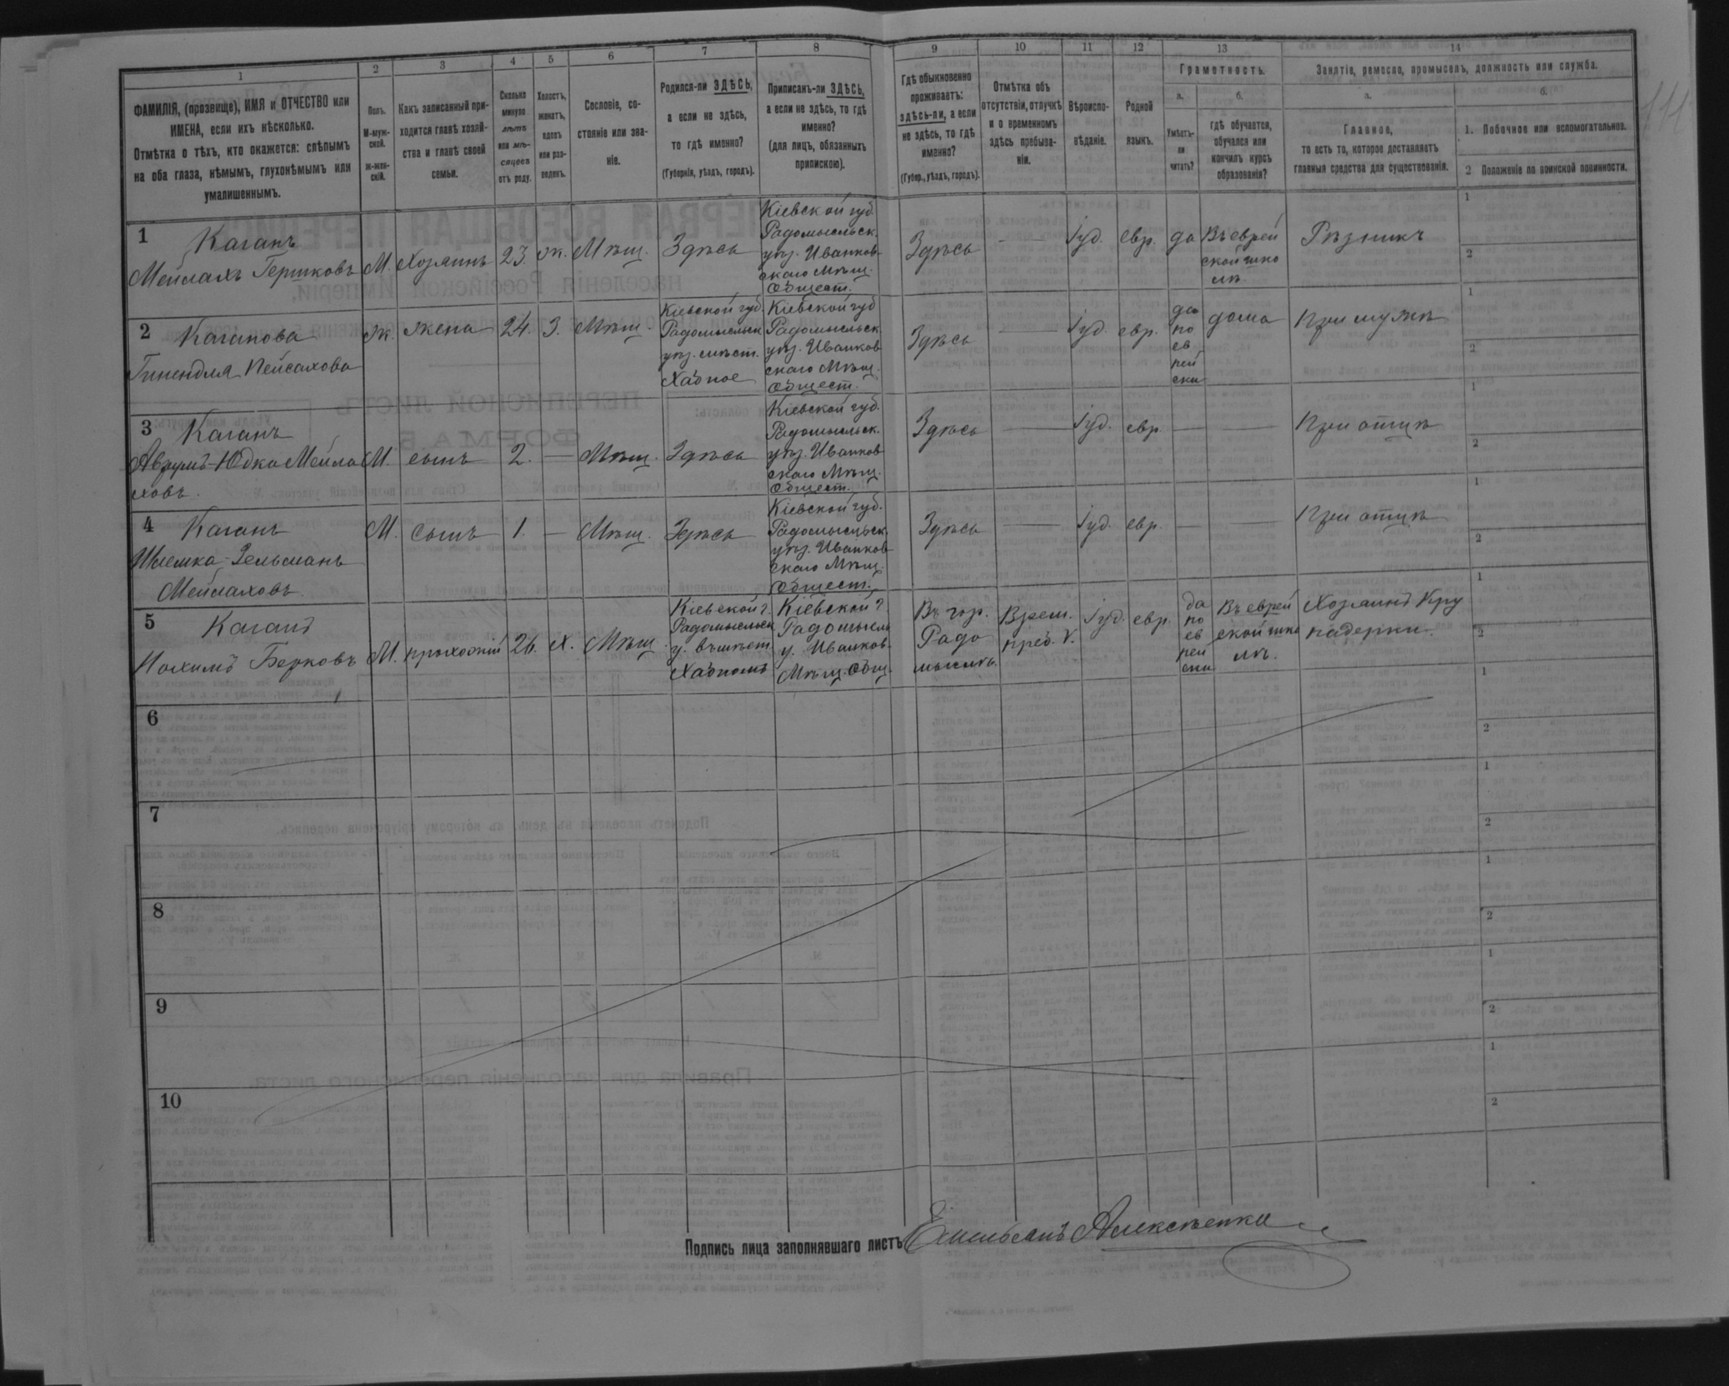 1 2 3 4 5 6 7 8 9 10 11 12 13 14
ФАМИЛІЯ, (прозвище), ИМЯ и ОТЧЕСТВО или
ИМЕНА, если ихъ нѣсколько.
Отмѣтка о тѣхъ, кто окажется: слѣпымъ
на оба глаза, нѣмымъ, глухонѣмымъ или
умалишеннымъ.
Полъ.
М-муж-
ской.
Ж-жен-
скій.
Какъ записанный при-
ходится главѣ хозяй-
ства и главѣ своей
семьи.
Сколько
минуло
лѣтъ
или мѣ-
сяцевъ
отъ роду.
Холостъ,
женатъ,
вдовъ
или раз-
веденъ.
Сословіе, со-
стояніе или зва-
ніе.
Родился-ли ЗДѢСЬ,
а если не здѣсь,
то гдѣ именно?
(Губернія, уѣздъ, городъ).
Приписанъ-ли ЗДѢСЬ,
а если не здѣсь, то гдѣ
именно?
(для лицъ, обязанныхъ
припискою).
Гдѣ обыкновенно
проживаетъ:
здѣсь-ли, а если
не здѣсь, то гдѣ
именно?
(Губер., уѣздъ, городъ).
Отмѣтка объ
отсутствіи, отлучкѣ
и о временномъ
здѣсь пребыва-
ніи.
Вѣроиспо-
вѣданіе.
Родной
языкъ.
Грамотность.
а.
Умѣетъ-
ли
читать?
б.
гдѣ обучается,
обучался или
кончилъ курсъ
образованія?
Занятіе, ремесло, промыселъ, должность или служба.
а.
Главное,
то есть то, которое доставляетъ
главныя средства для существованія.
б.
1. Побочное или вспомогательное.
2 Положеніе по воинской повинности.
1
Каганъ
Мейлахъ Гершковъ
М.
Хозяинъ
23
ж.
Мѣщ.
Здѣсь
Кіевской губ.
Радомысльск.
уѣз. Иванков
скаго Мѣщ.
Общест.
Здѣсь
Іуд.
евр.
да
Въ еврей
ской шко
лѣ.
Рѣзникъ
1
2
2
Каганова
Гинендля Пейсахова
Ж.
жена
24.
З.
Мѣщ.
Кіевской губ
Радомысльск
уѣз. мѣст.
Хабное
Кіевской губ
Радомысльск.
уѣз. Иванков
скаго Мѣщ.
Общест.
Здѣсь
Іуд.
евр.
да
по
ев
рей
ски
дома
При мужѣ
1
2
3
Каганъ
Аврумъ-Юдка Мейла
ховъ.
М.
сынъ
2.
Мѣщ.
Здѣсь
Кіевской губ.
Радомысльск.
уѣз. Иванков
скаго Мѣщ.
Общест.
Здѣсь
Іуд.
евр.
При отцѣ
1
2
4
Каганъ
Шлемка-Зельманъ
Мейлаховъ
М.
сынъ
1.
Мѣщ.
Здѣсь
Кіевской губ.
Радомысльск.
уѣз. Иванков
скаго Мѣщ.
Общест.
Здѣсь
Іуд.
евр.
При отцѣ
1
2
5
Каганъ
Нохимъ Берковъ
М.
прихожій
26.
Х.
Мѣщ.
Кіевской г.
Радомысльск
у. въ мѣст.
Хабномъ
Кіевской г.
Радомысль
у. Иванков.
Мѣщ. Общ.
Въ гор.
Радо
мыслѣ
Врем.
преб. V.
Іуд.
евр.
да
по
ев
рей
ски
Въ еврей
ской шко
лѣ.
Хозяинъ Кру
1
2
6
1
2
7
1
2
8
1
2
9
1
2
10
1
2
Подпись лица заполнявшаго листъ Емельянъ Алексѣенко